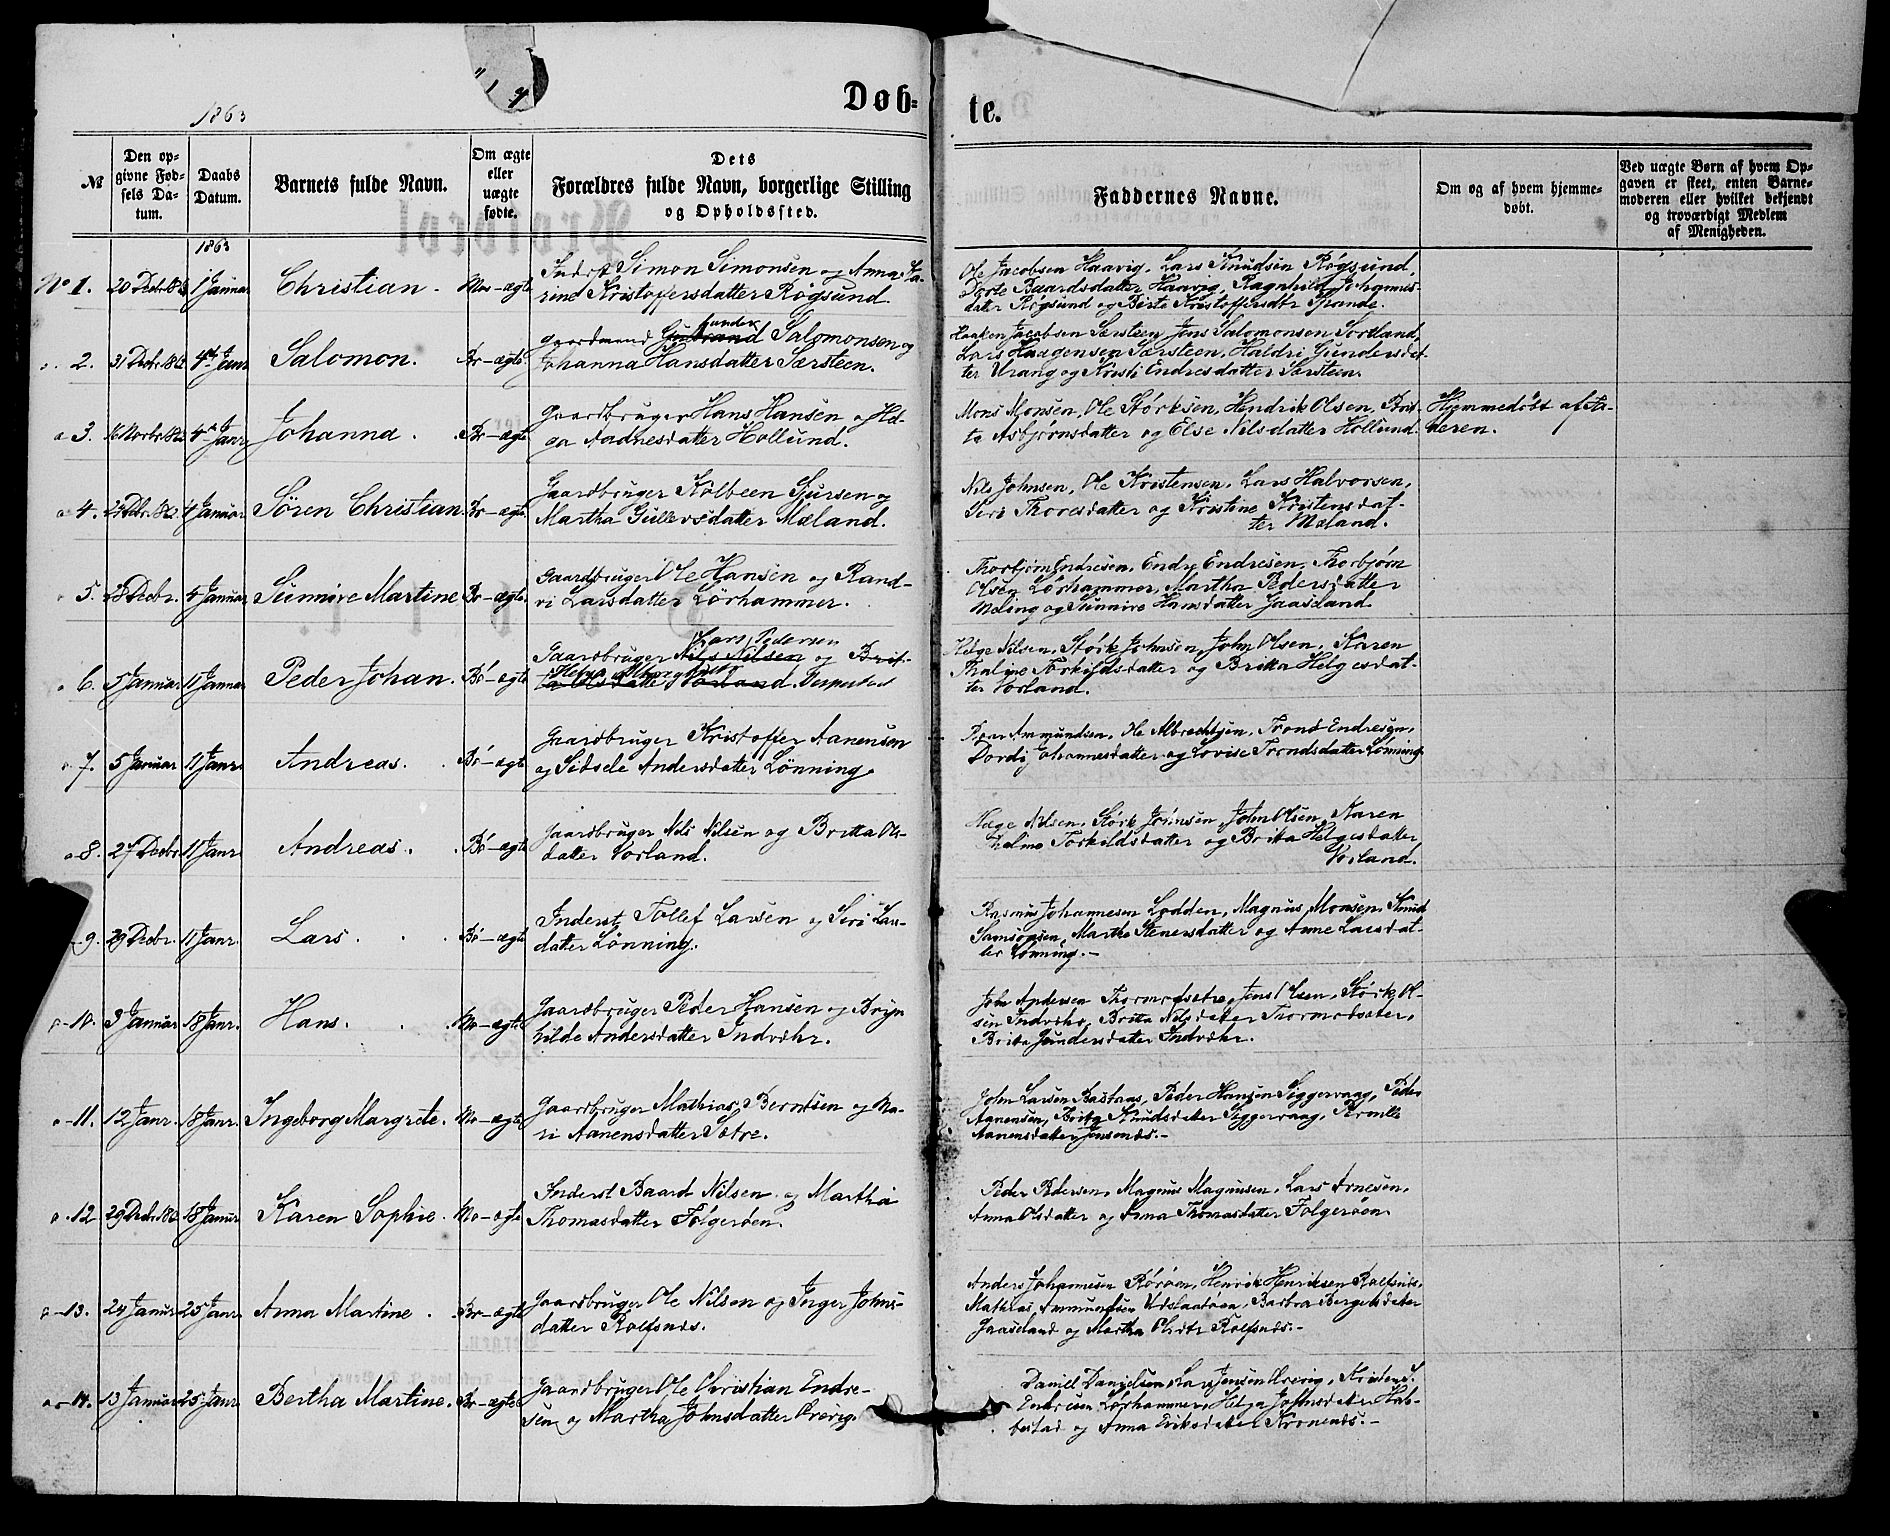 1863
Døb-
te.
№
Den op-
givne Fød-
sels Da-
tum.
Daabs
Datum.
Barnets fulde Navn.
Om ægte
eller
uægte
fødte.
Dets
Forældres fulde Navn, borgerlige Stilling
og Opholdssted.
Faddernes Navne.
Om og af hvem hjemme-
døbt.
Ved uægte Børn af hvem Op-
gaven er skeet, enten Barne-
moderen eller hvilket bekjendt
og troværdigt Medlem
af Menigheden.
1863
No 1. 20 Decbr. 1 Januar Christian. Mo-ægte
Inderst Simon Simonsen og Anna Ka-
rine Kristoffersdatter Røgsund
Ole Jacobsen Haavig, Lars Knudsen Røgsund,
Dorte Baardsdatter Haavig, Ragnhild Johannes-
datter Røgsund og Berte Kristoffersdtr Spande.
2. 31 Decbr. 1862 4de Janr Salomon. Br-ægte
Gaardmand Gunder Salomonsen og
Johanna Hansdatter Særsteen.
Haaken Jacobsen Særsteen, Jens Salomonsen Sortland,
Lars Haagensen Særsteen, Haldri Gundersdat-
ter Vrang og Kristi Endresdatter Særsteen.
3. 4de Janr Johanna. Br-ægte
Gaardbruger Hans Hansen og Hel-
ga Aadnesdatter Hollund.
Mons Monsen, Ole Størksen, Hendrik Olsen, Brit-
ta Asbjørnsdatter og Else Nilsdatter Hollund.
Hjemmedøbt af Fa-
deren.
4. 4 Januar Søren Christian. Br-ægte
Gaardbruger Kolbeen Sjursen og
Martha Gulleivsdatter Mæland.
Nils Johnsen, Ole Kristensen, Lars Halvorsen,
Siri Thoresdatter og Kristine Kristensdat-
ter Mæland.
5. 28 Decbr. 4 Januar Sunnive Martine Br-ægte
Gaardbruger Ole Hansen og Rand-
vi Larsdatter Lørhammer.
Thorbjørn Endresen, Endre Endresen, Thorbjørn
Olsen Lørhammer, Martha Pedersdatter
Meling og Sunnive Hansdatter Gaasland
6. 5 Januar 11 Januar Peder Johan. Bø-ægte
Lars Pedersen
Gaardbruger Nils Nilsen og Brit-
ta Olsdatter Vorland. Vespestad
Helge Nilsen, Størk Johnsen, John Olsen, Karen
Thaline Torkildsdatter og Britta Helgesdat-
ter Vorland.
7. 5 Januar 11 Janr. Andreas. Bø-ægte
Gaardbruger Kristoffer Aanensen
og Sidsele Andersdatter Lønning.
Peder Ammundsen, Ole Albrechtsen, Trond Endresen,
Dordi Johannesdatter og Lovise Trondsdatter Lønning
8. 27 Decbr. 11 Janr. Andreas. Bø-ægte
Gaardbruger Nils Nilsen og Britta Ols-
datter Vorland.
Helge Nilsen, Størk Johnsen, John Olsen, Karen
Thaline Torkildsdatter og Brita Helgesdatter
Vorland.
9. 29 Decbr. 11 Janr. Lars. Bø-ægte
Inderst Tollef Larsen og Siri Lars-
datter Lønning.
Rasmus Johannesen Lodden, Magnus Monsen, Knud
Samsonsen, Martha Stenersdatter og Anne Larsdat-
ter Lønning.-
10. 3 Januar 18 Janr. Hans. Mo-ægte
Gaardbruger Peder Hansen og Bryn
hilde Andersdatter Indvæhr.
John Andersen Thormodsæter, Jens Olsen, Størk Ol-
sen Indvæhr, Britta Nilsdatter Thormodsæter,
Brita Gundersdatter Indvæhr.
11. 12 Janr. 18 Janr. Ingeborg Margrete. Mo-ægte
Gaardbruger Mathias Berntsen og Ma-
ri Aanensdatter Sætre.
John Larsen Bastnes, Peder Hansen Siggervaag, Peder
Aanensen, Brita Knudsdatter Siggervaag, Pernille
Aanensdatter Jensenæs.-
12. 29 Decbr. 18 Januar Karen Sophie. Mo-ægte
Inderst Baard Nilsen og Martha
Thomasdatter Folgerøen.
Peder Pedersen, Magnus Magnusen, Lars Arnesen,
Anna Olsdatter og Anna Thomasdatter Folgerøen.
13. 24 Januar 25 Janr. Anna Martine. Br-ægte
Gaardbruger Ole Nilsen og Inger Johns-
datter Rolfsnæs.
Anders Johannesen Rørøen, Henrik Henriksen Rolfsnæs,
Mathias Ammundsen Vestaatøen, Barbra Bergesdatter
Gaasland og Martha Olsdtr Rolfsnæs.-
14. 13 Januar 25 Janr. Bertha Martine. Br-ægte
Gaardbruger Ole Christian Endre-
sen og Martha Johnsdatter Urevig.
Daniel Danielsen, Lars Jensen Urevig,
Endresen Lørhammer, Helga Johnsdatter Hab-
bestad og Anna Eriksdatter Kronenæs.-